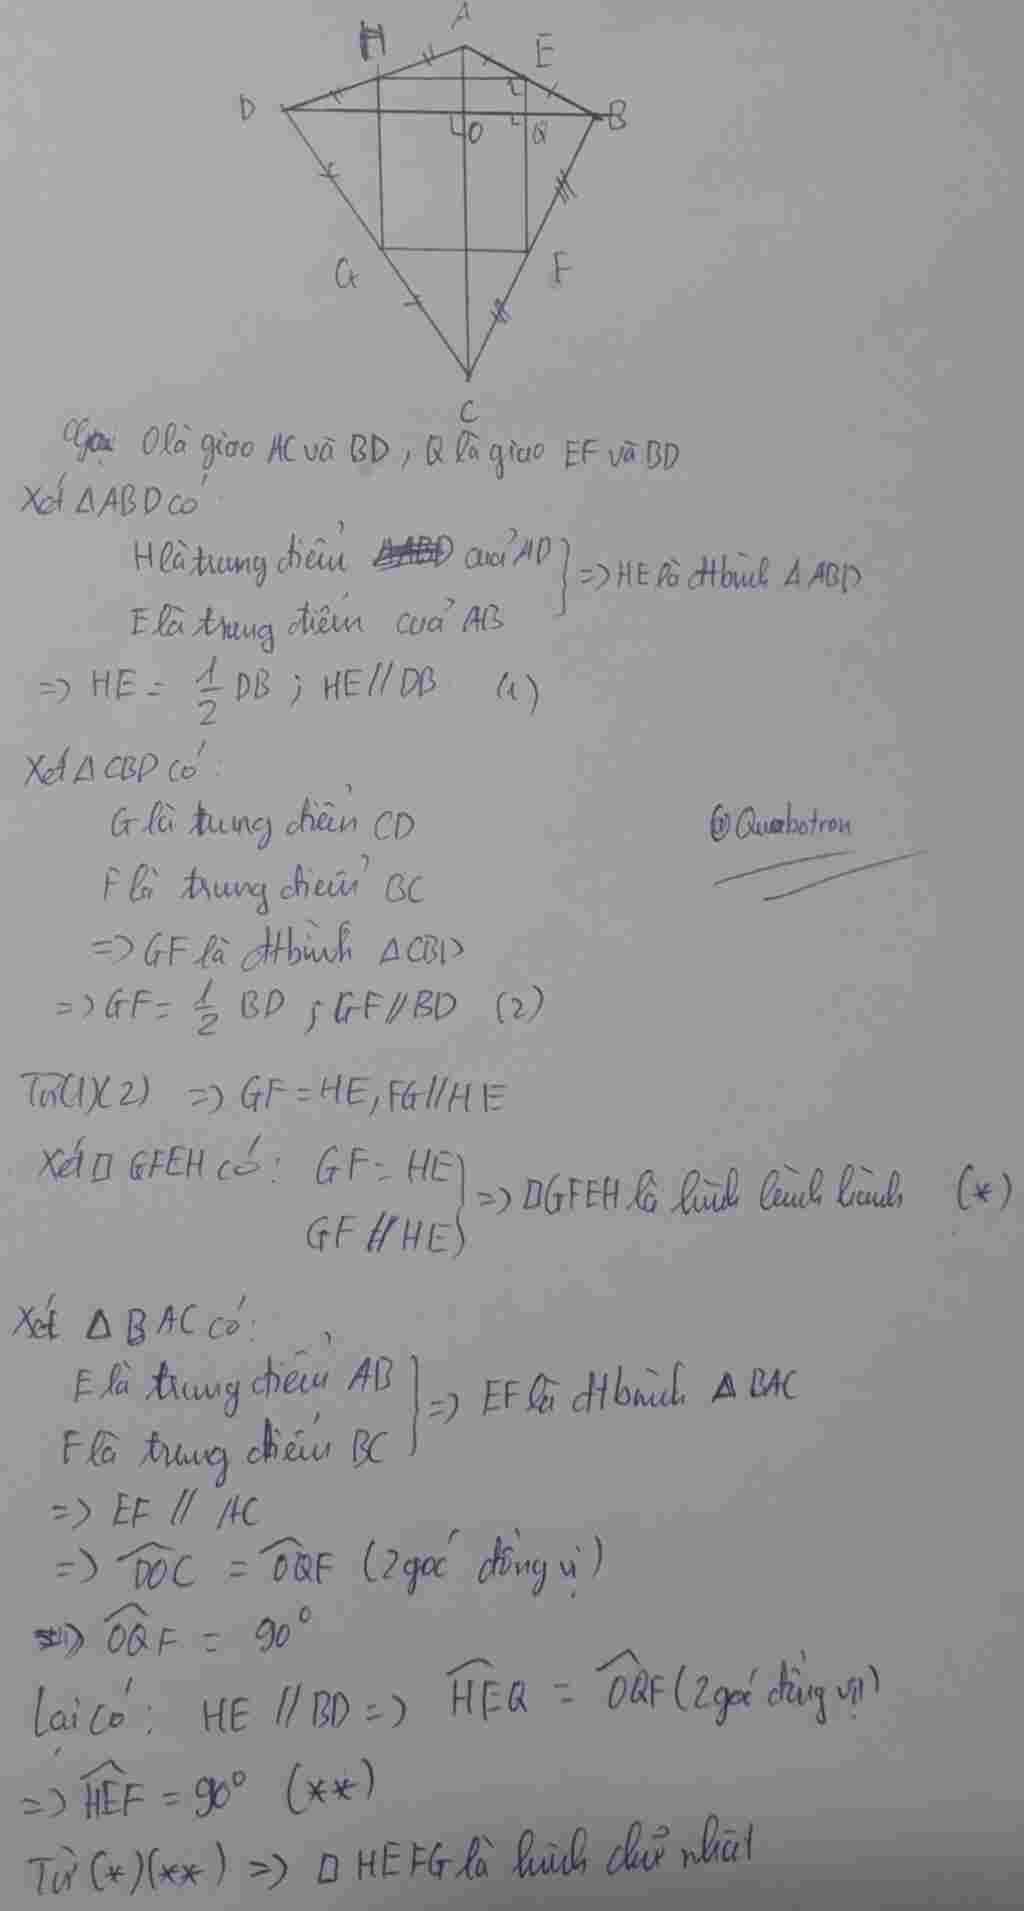 A
H
E
D
O
Q
B
G
F
C
Gọi O là giao AC và BD, Q là giao EF và BD
Xét Δ ABD có
H là trung điểm của AD
E là trung điểm của AB
} => HE là đtbình Δ ABD
=> HE = 1/2 DB ; HE // DB (1)
Xét Δ CBD có:
G là trung điểm CD
@Quabotron
F là trung điểm BC
=> GF là đtbình Δ CBD
=> GF = 1/2 BD ; GF // BD (2)
Từ (1)(2) => GF = HE, FG // HE
Xét □ GFEH có: GF = HE
GF // HE
} => □ GFEH là hình bình hành (*)
Xét Δ BAC có:
E là trung điểm AB
F là trung điểm BC
} => EF là đtbình Δ BAC
=> EF // AC
=> DOC = OQF (2 góc đồng vị)
=> OQF = 90°
Lại có: HE // BD => HEQ = OQF (2 góc đồng vị)
=> HEF = 90° (**)
Từ (*)(**) => □ HEFG là hình chữ nhật